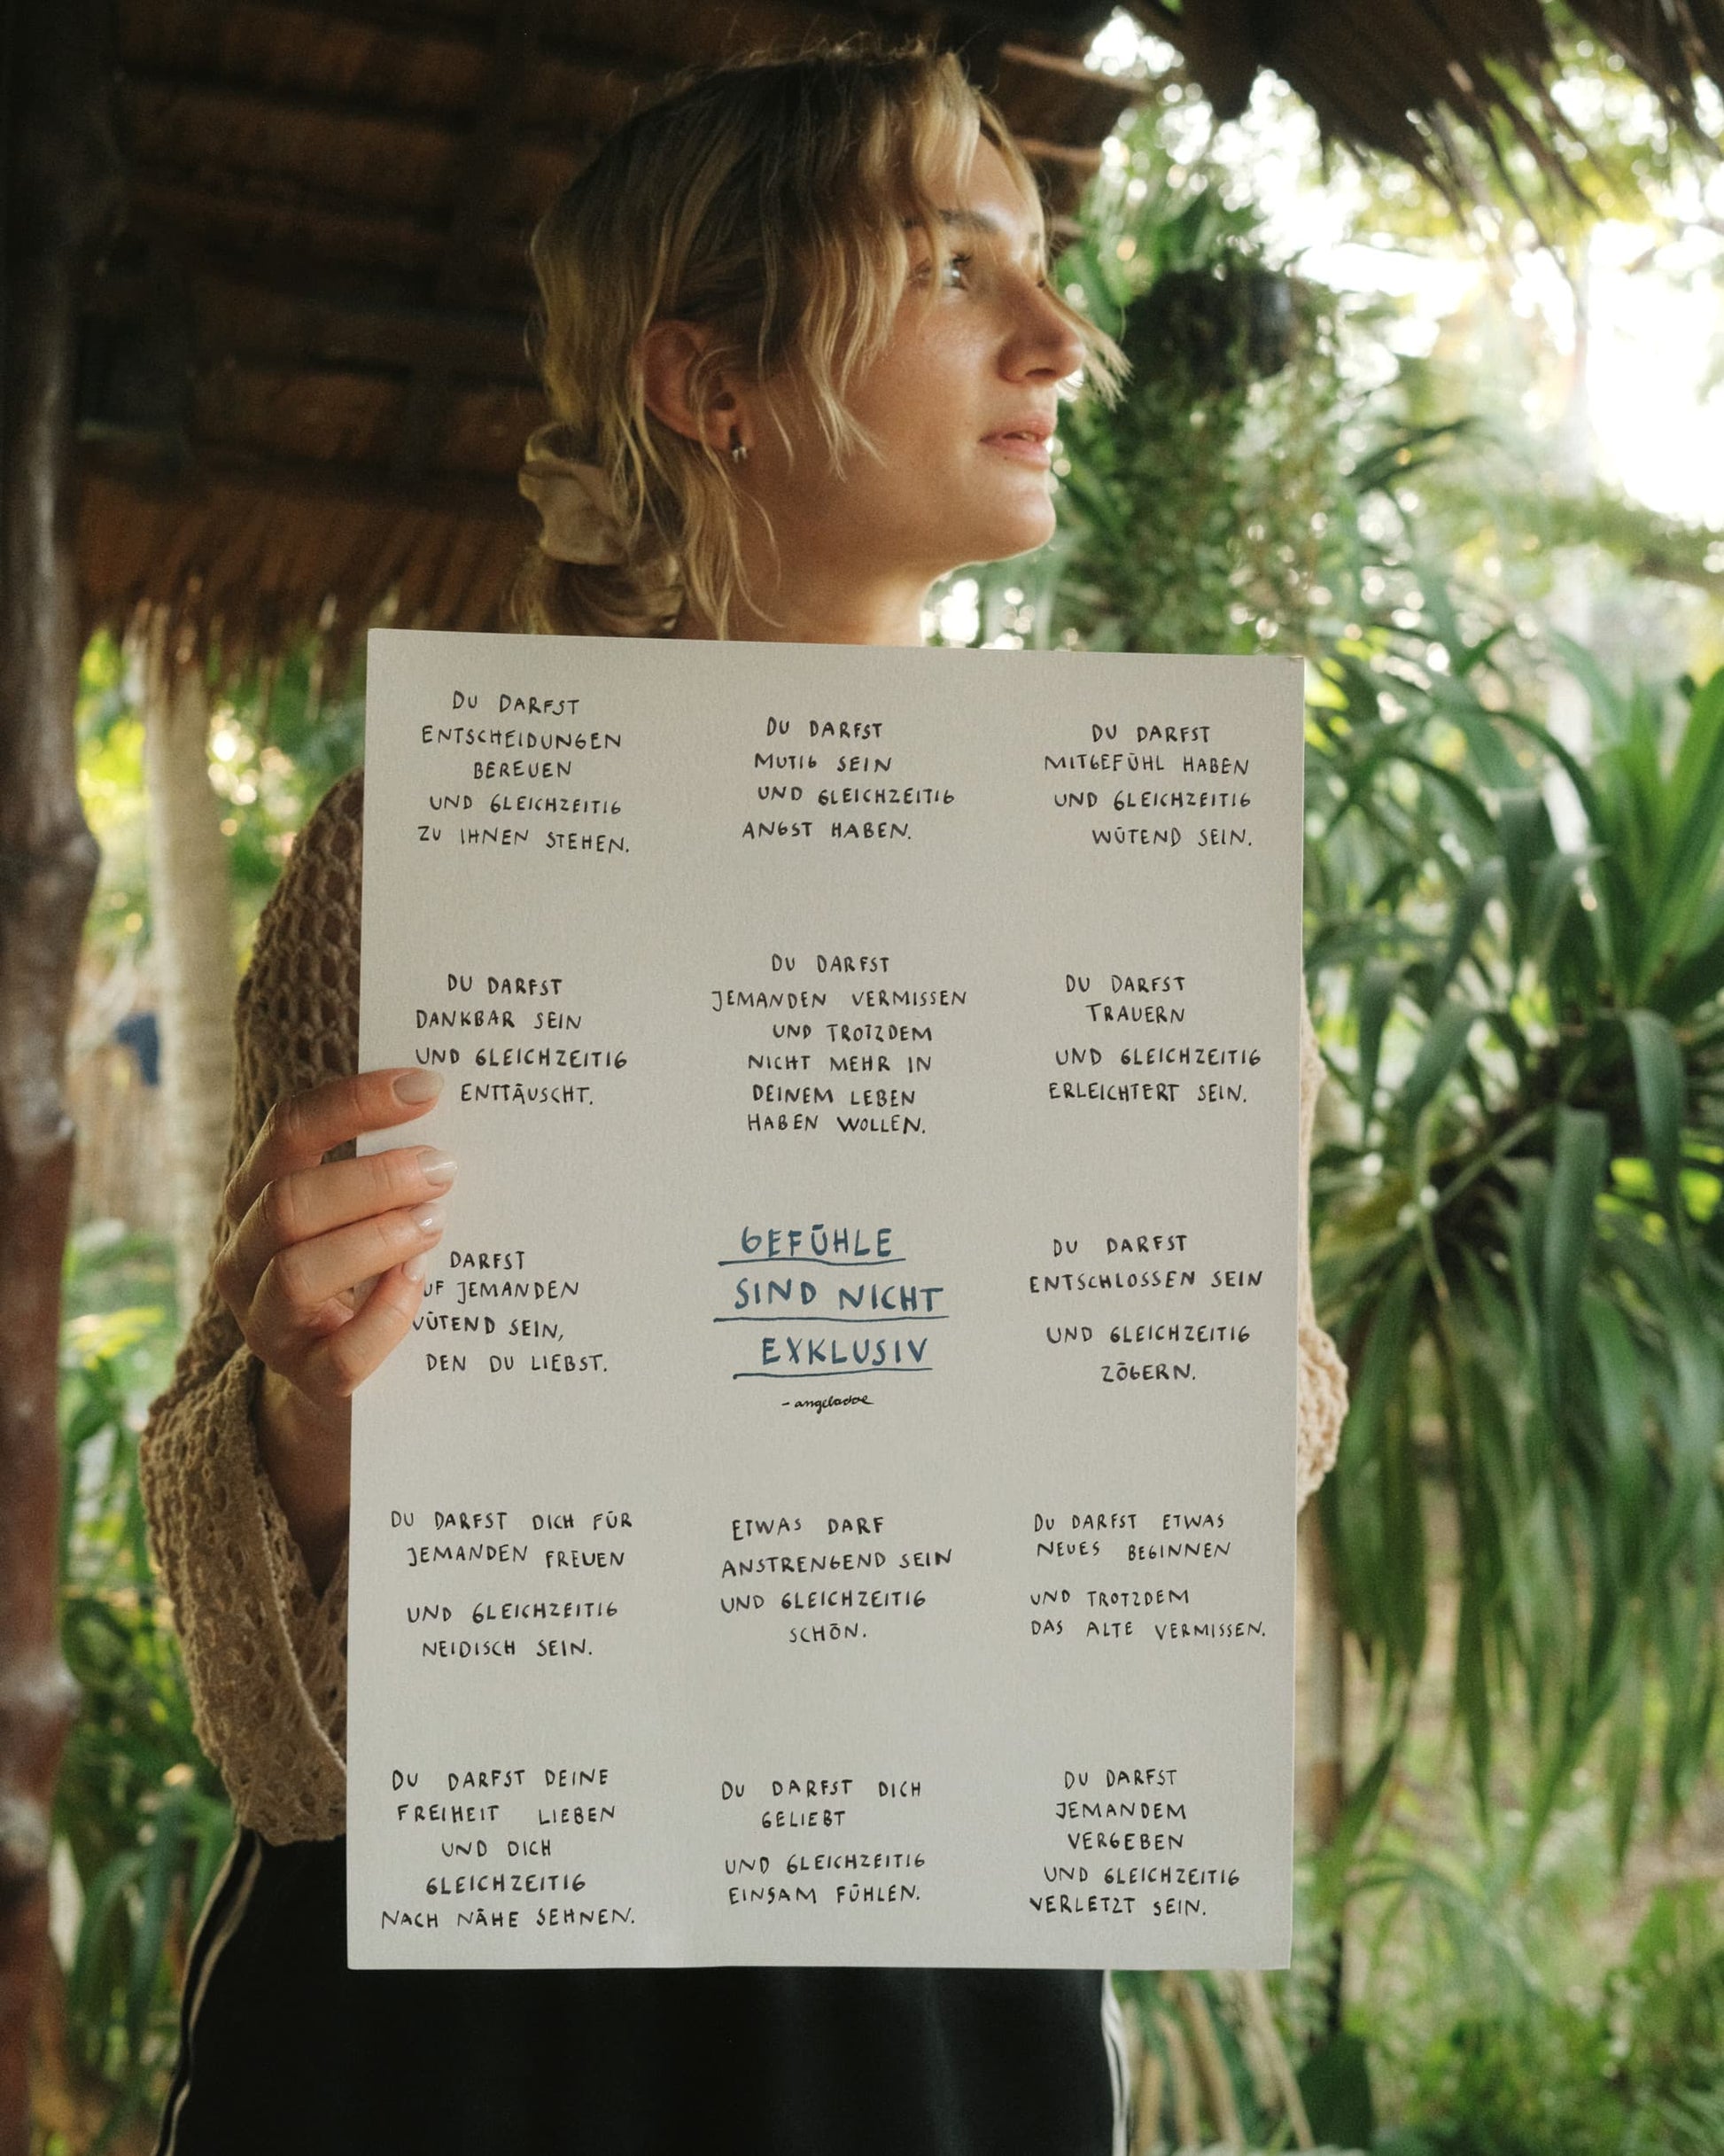 DU DARFST
ENTSCHEIDUNGEN
BEREUEN
UND GLEICHZEITIG
ZU IHNEN STEHEN.
DU DARFST
MUTIG SEIN
UND GLEICHZEITIG
ANGST HABEN.
DU DARFST
MITGEFÜHL HABEN
UND GLEICHZEITIG
WÜTEND SEIN.
DU DARFST
DANKBAR SEIN
UND GLEICHZEITIG
ENTTÄUSCHT.
DU DARFST
JEMANDEN VERMISSEN
UND TROTZDEM
NICHT MEHR IN
DEINEM LEBEN
HABEN WOLLEN.
DU DARFST
TRAUERN
UND GLEICHZEITIG
ERLEICHTERT SEIN.
DARFST
JEMANDEN
SEIN,
DEN DU LIEBST.
GEFÜHLE
SIND NICHT
EXKLUSIV
- angeladoe
DU DARFST
ENTSCHLOSSEN SEIN
UND GLEICHZEITIG
ZÖGERN.
DU DARFST DICH FÜR
JEMANDEN FREUEN
UND GLEICHZEITIG
NEIDISCH SEIN.
ETWAS DARF
ANSTRENGEND SEIN
UND GLEICHZEITIG
SCHÖN.
DU DARFST ETWAS
NEUES BEGINNEN
UND TROTZDEM
DAS ALTE VERMISSEN.
DU DARFST DEINE
FREIHEIT LIEBEN
UND DICH
GLEICHZEITIG
NACH NÄHE SEHNEN.
DU DARFST DICH
GELIEBT
UND GLEICHZEITIG
EINSAM FÜHLEN.
DU DARFST
JEMANDEM
VERGEBEN
UND GLEICHZEITIG
VERLETZT SEIN.